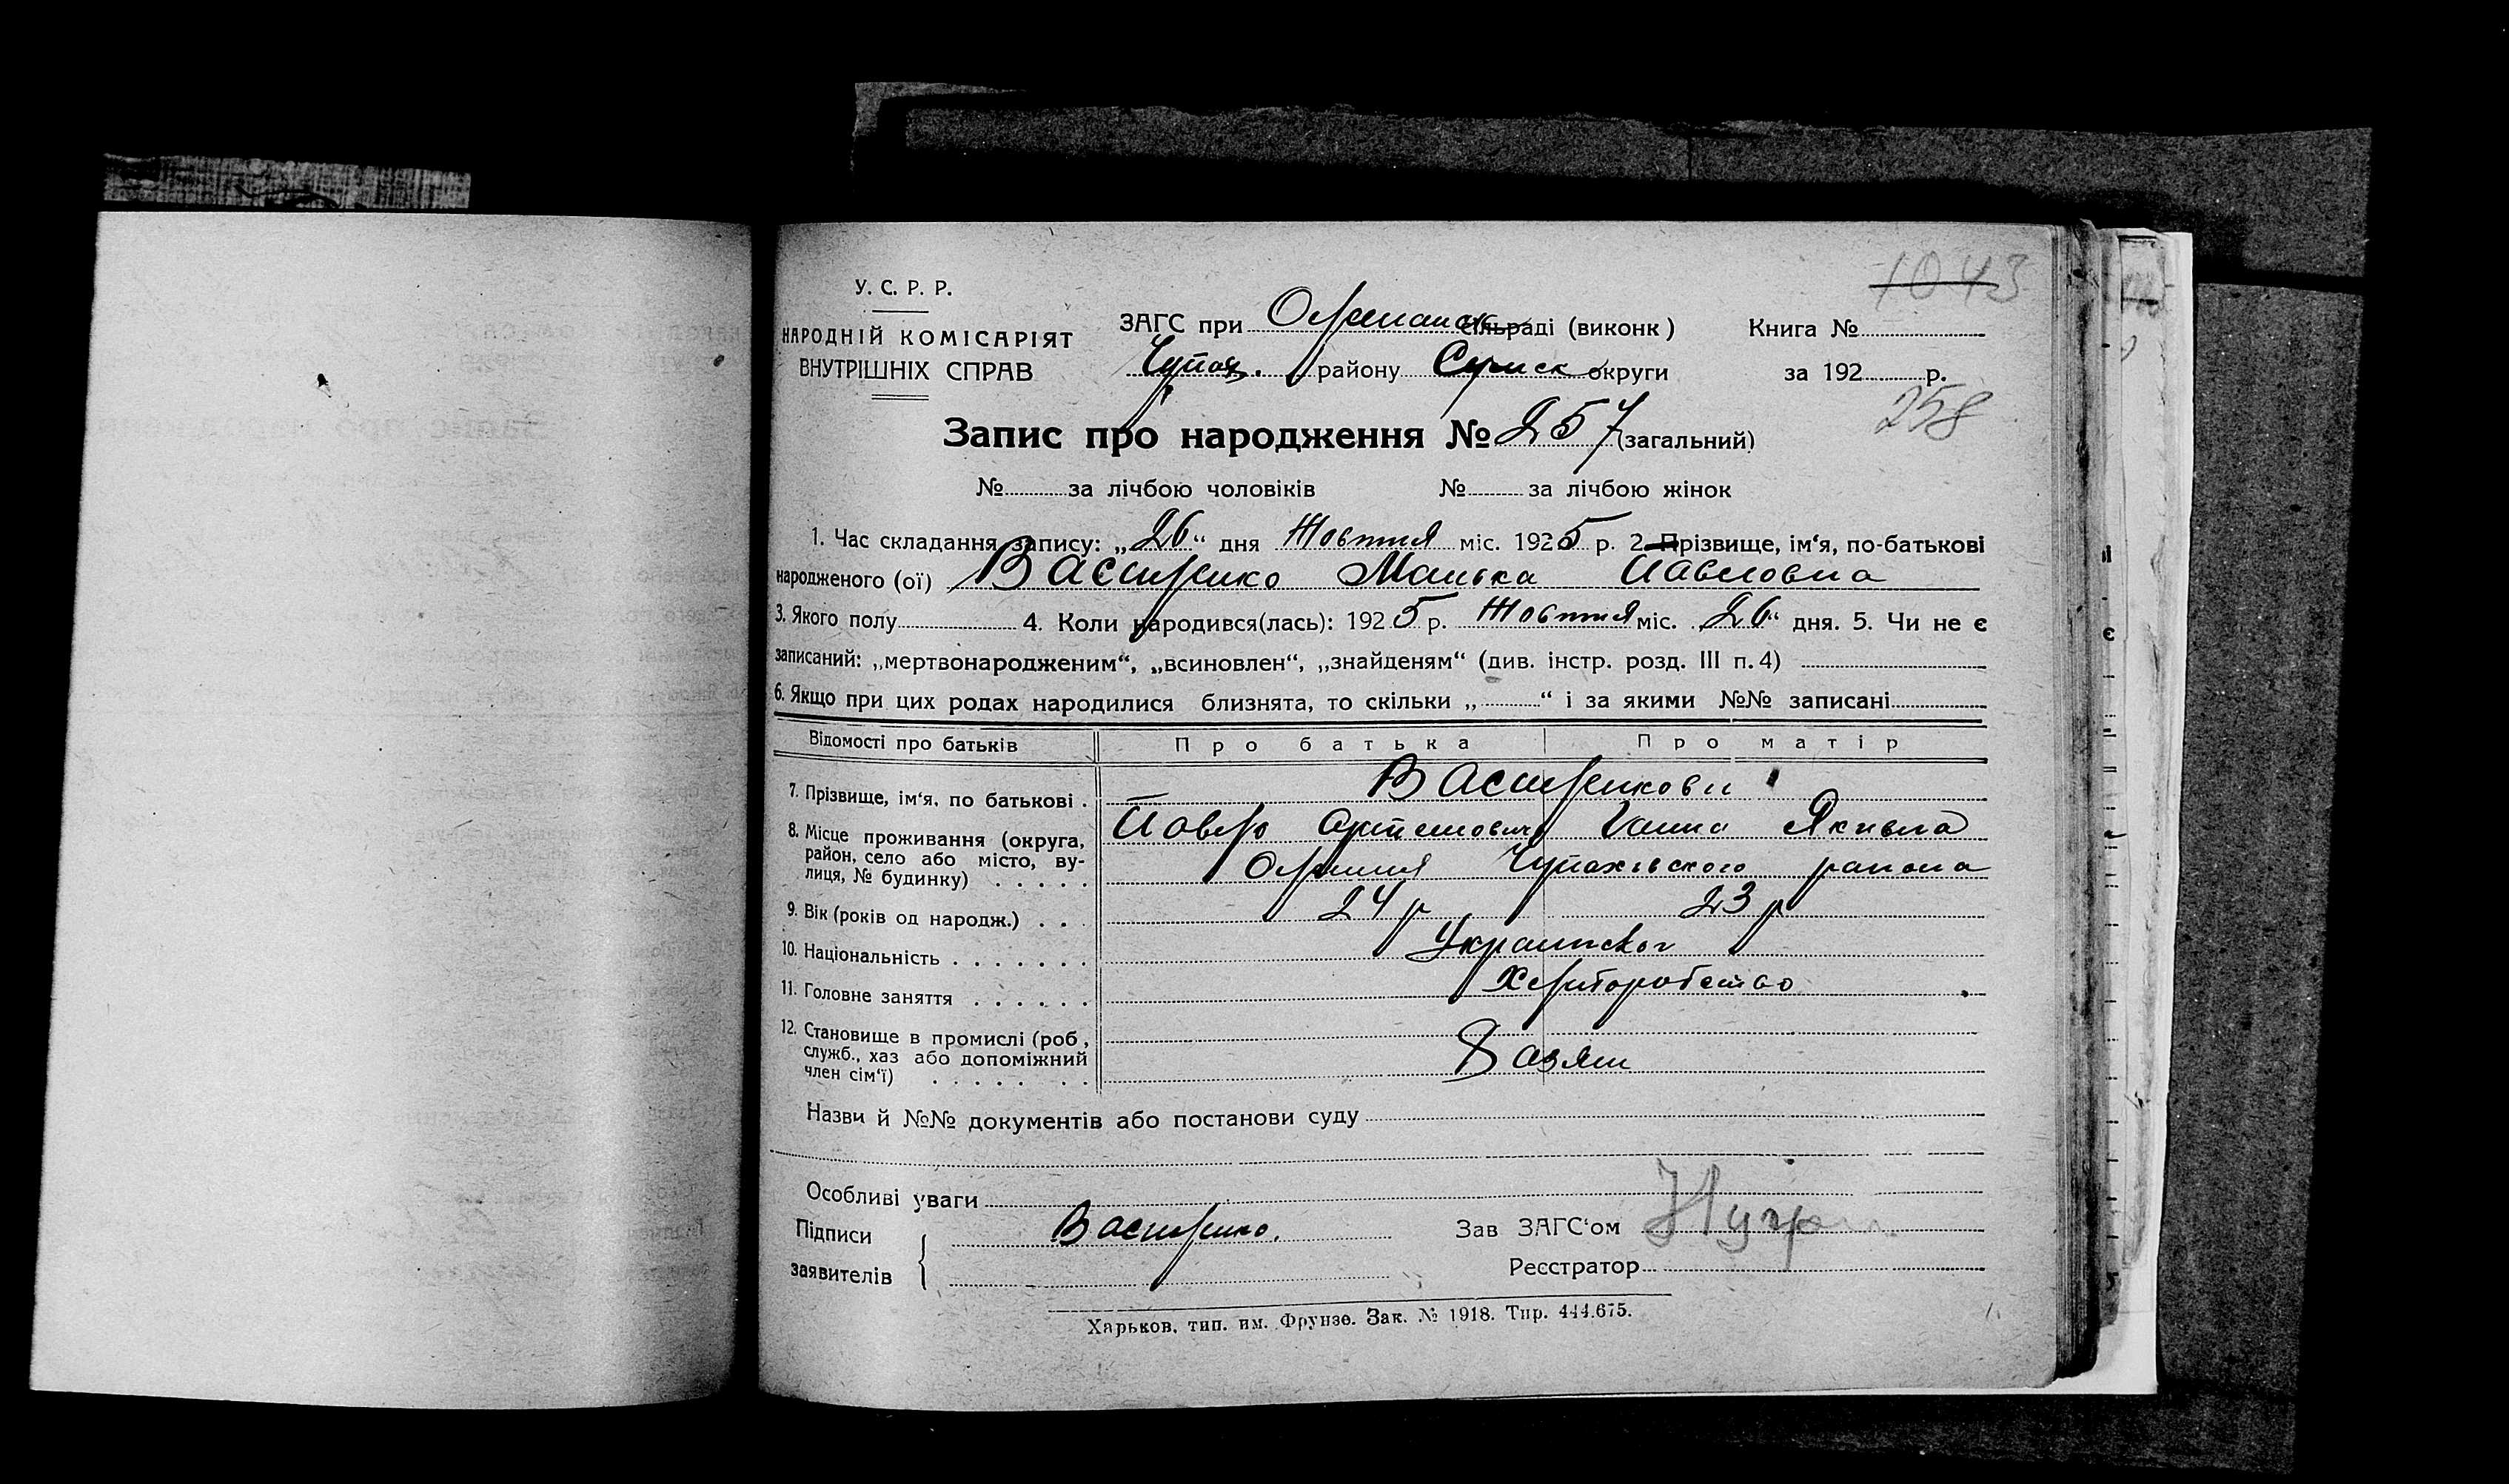 1043
У. С. Р. Р.
НАРОДНІЙ КОМІСАРІЯТ
ВНУТРІШНІХ СПРАВ
ЗАГС при сільраді (виконк) Книга №
Чупах. району Сумск округи за 192 р.
258
Запис про народження № 257 (загальний)
№ за лічбою чоловіків № за лічбою жінок
1. Час складання запису: „26“ дня Жовтня міс. 1925 р. 2. Прізвище, ім‘я, по-батькові
народженого (ої) Василенко Манька Павловна
3. Якого полу 4. Коли народився(лась): 1925 р. Жовтня міс. 26“ дня. 5. Чи не є
записаний: „мертвонародженим“, „всиновлен“, „знайденям“ (див. інстр. розд. III п. 4)
6. Якщо при цих родах народилися близнята, то скільки „ “ і за якими №№ записані
Відомості про батьків Про батька Про матір
7. Прізвище, ім‘я, по батькові . Василенкови
Павло Артемович Ганна Якивна
8. Місце проживання (округа, район, село або місто, вулиця, № будинку) . . . . . Олешня Чупахівского района
9. Вік (років од народж.) . . . 24 р 23 р
10. Національність . . . . . . .
11. Головне заняття . . . . . . Хліборобство
12. Становище в промислі (роб, служб., хаз або допоміжний член сім‘ї) . . . . . . . Хазяин
Назви й №№ документів або постанови суду
Особливі уваги
Підписи
заявителів
Василенко.
Зав ЗАГС‘ом
Реєстратор
Харьков, тип. им. Фрунзе. Зак. № 1918. Тир. 444.675.